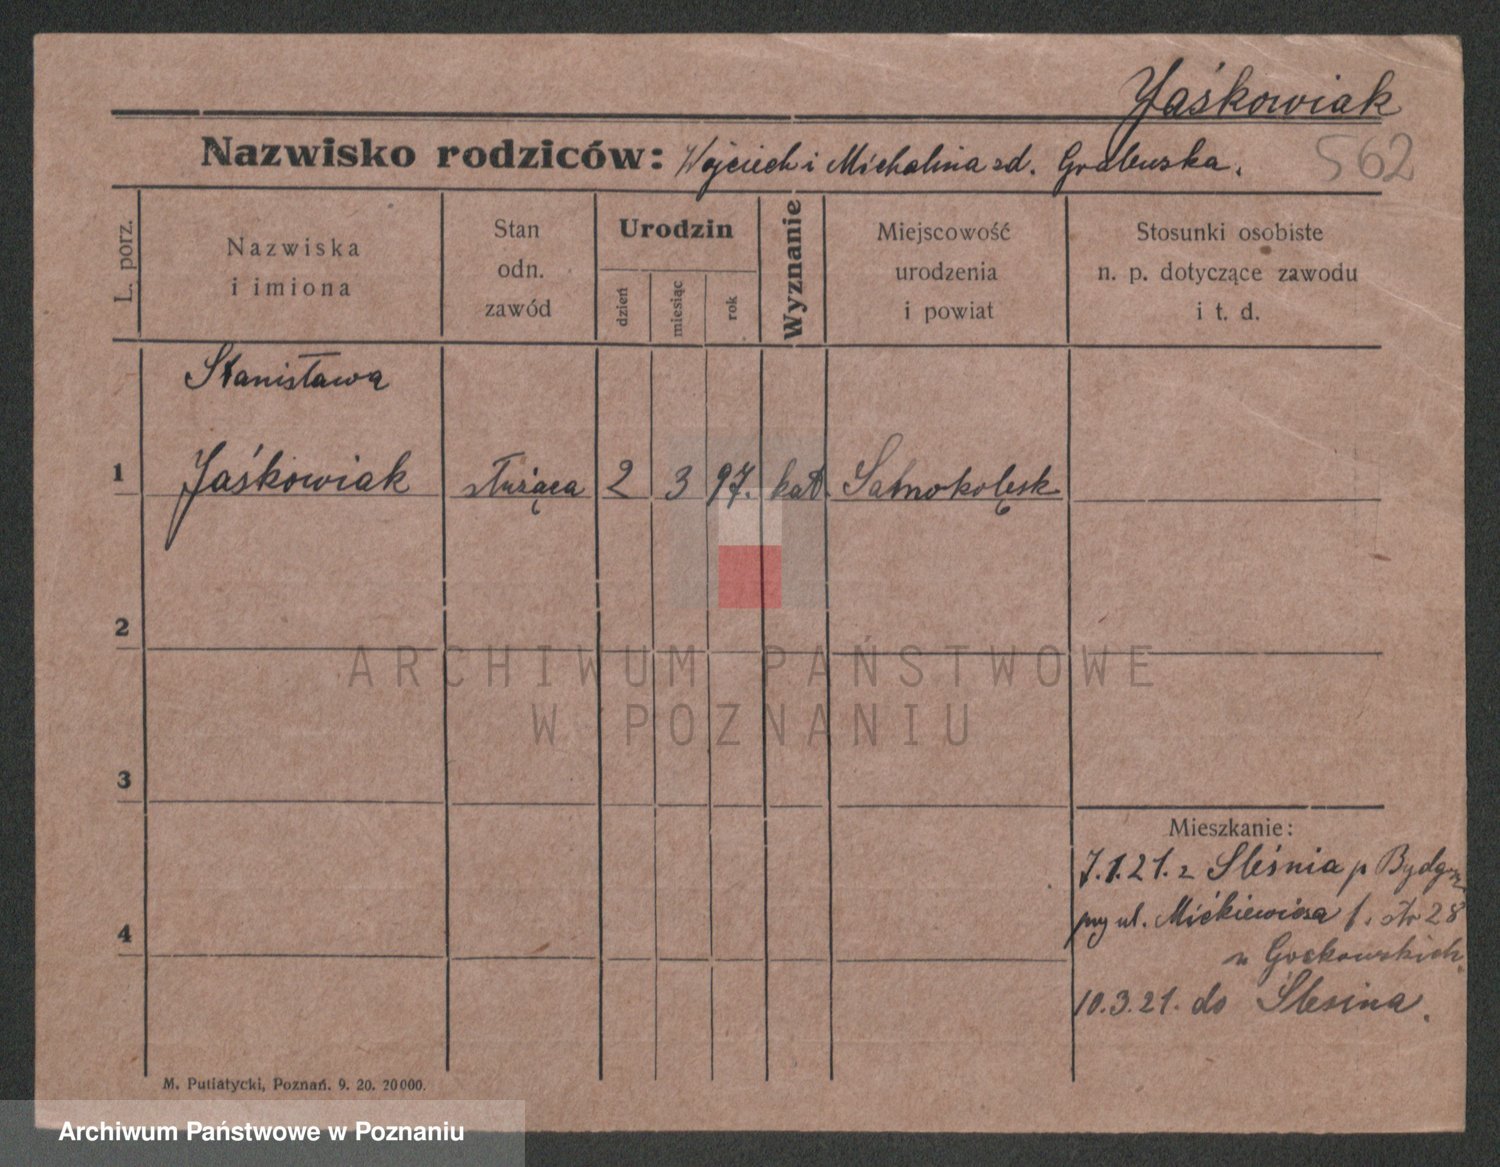 Jaśkowiak
Nazwisko rodziców: Wojciech i Michalina zd. Grabuska.
562
L. porz.
Nazwiska
i imiona
Stan
odn.
zawód
Urodzin
dzień
miesiąc
rok
Wyznanie
Miejscowość
urodzenia
i powiat
Stosunki osobiste
n. p. dotyczące zawodu
i t. d.
Stanisława
1 Jaśkowiak służąca 2 3 97. kat. Samokolęsk
2
ARCHIWUM PAŃSTWOWE
W POZNANIU
3
Mieszkanie:
7.1.21. z Sleśnia p Bydg
4
ul. Mićkiewicza 28
u Gockowskich
10.3.21. do Ślesina.
M. Putiatycki, Poznań. 9. 20. 20000.
Archiwum Państwowe w Poznaniu